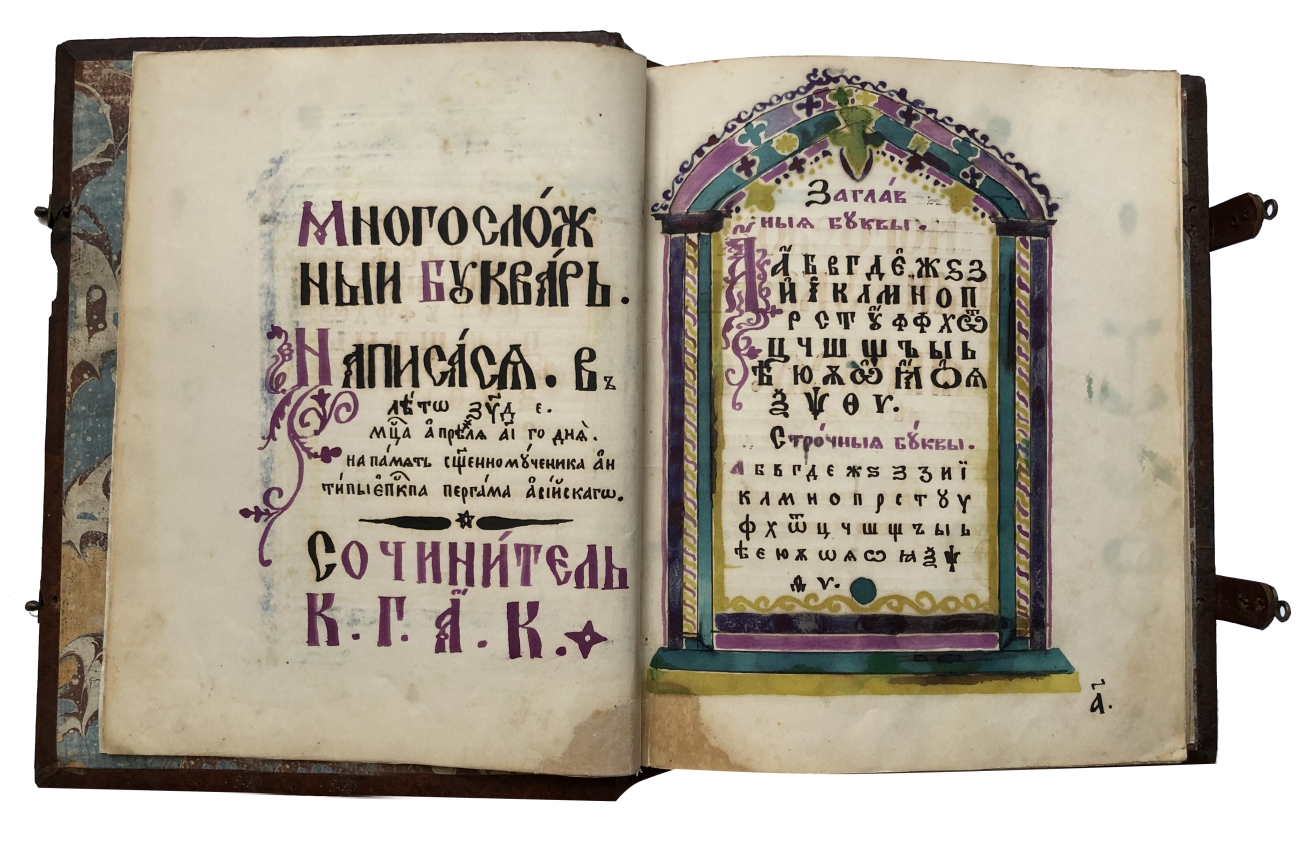 Многосло́ж
ныи Буква́рь.
Написа́ся. Въ
лѣ́тѡ ҂зу҃д е.
мц҃а а҆прѣ́ля а҃і го дня̀.
на па́мѧть сщ҃енному́ченика а҆н
ти́пы є҆пк҃па перга́ма а҆сі́йскагѡ.
Сочини́тель
К. Г. А҃. К.
Загла́в
ныѧ бꙋ́квы.
А҆ б в г д є҆ ж ѕ з
и҆ і҆ к л м н о п
р с т ꙋ҆ ф ф х ѿ
ц ч ш щ ъ ы ь
ѣ ю ѫ ѽ ꙗ ѻ ѧ
ѯ ѱ ѳ ѵ.
Стро́чныѧ бꙋ́квы.
а б в г д е ж ѕ з з и ї
к л м н о п р с т ꙋ у
ф х ѿ ц ч ш щ ъ ы ь
ѣ е ю ѫ ѡ ѧ ѡ ꙗ ѯ ѱ
ѵ.
а҃.